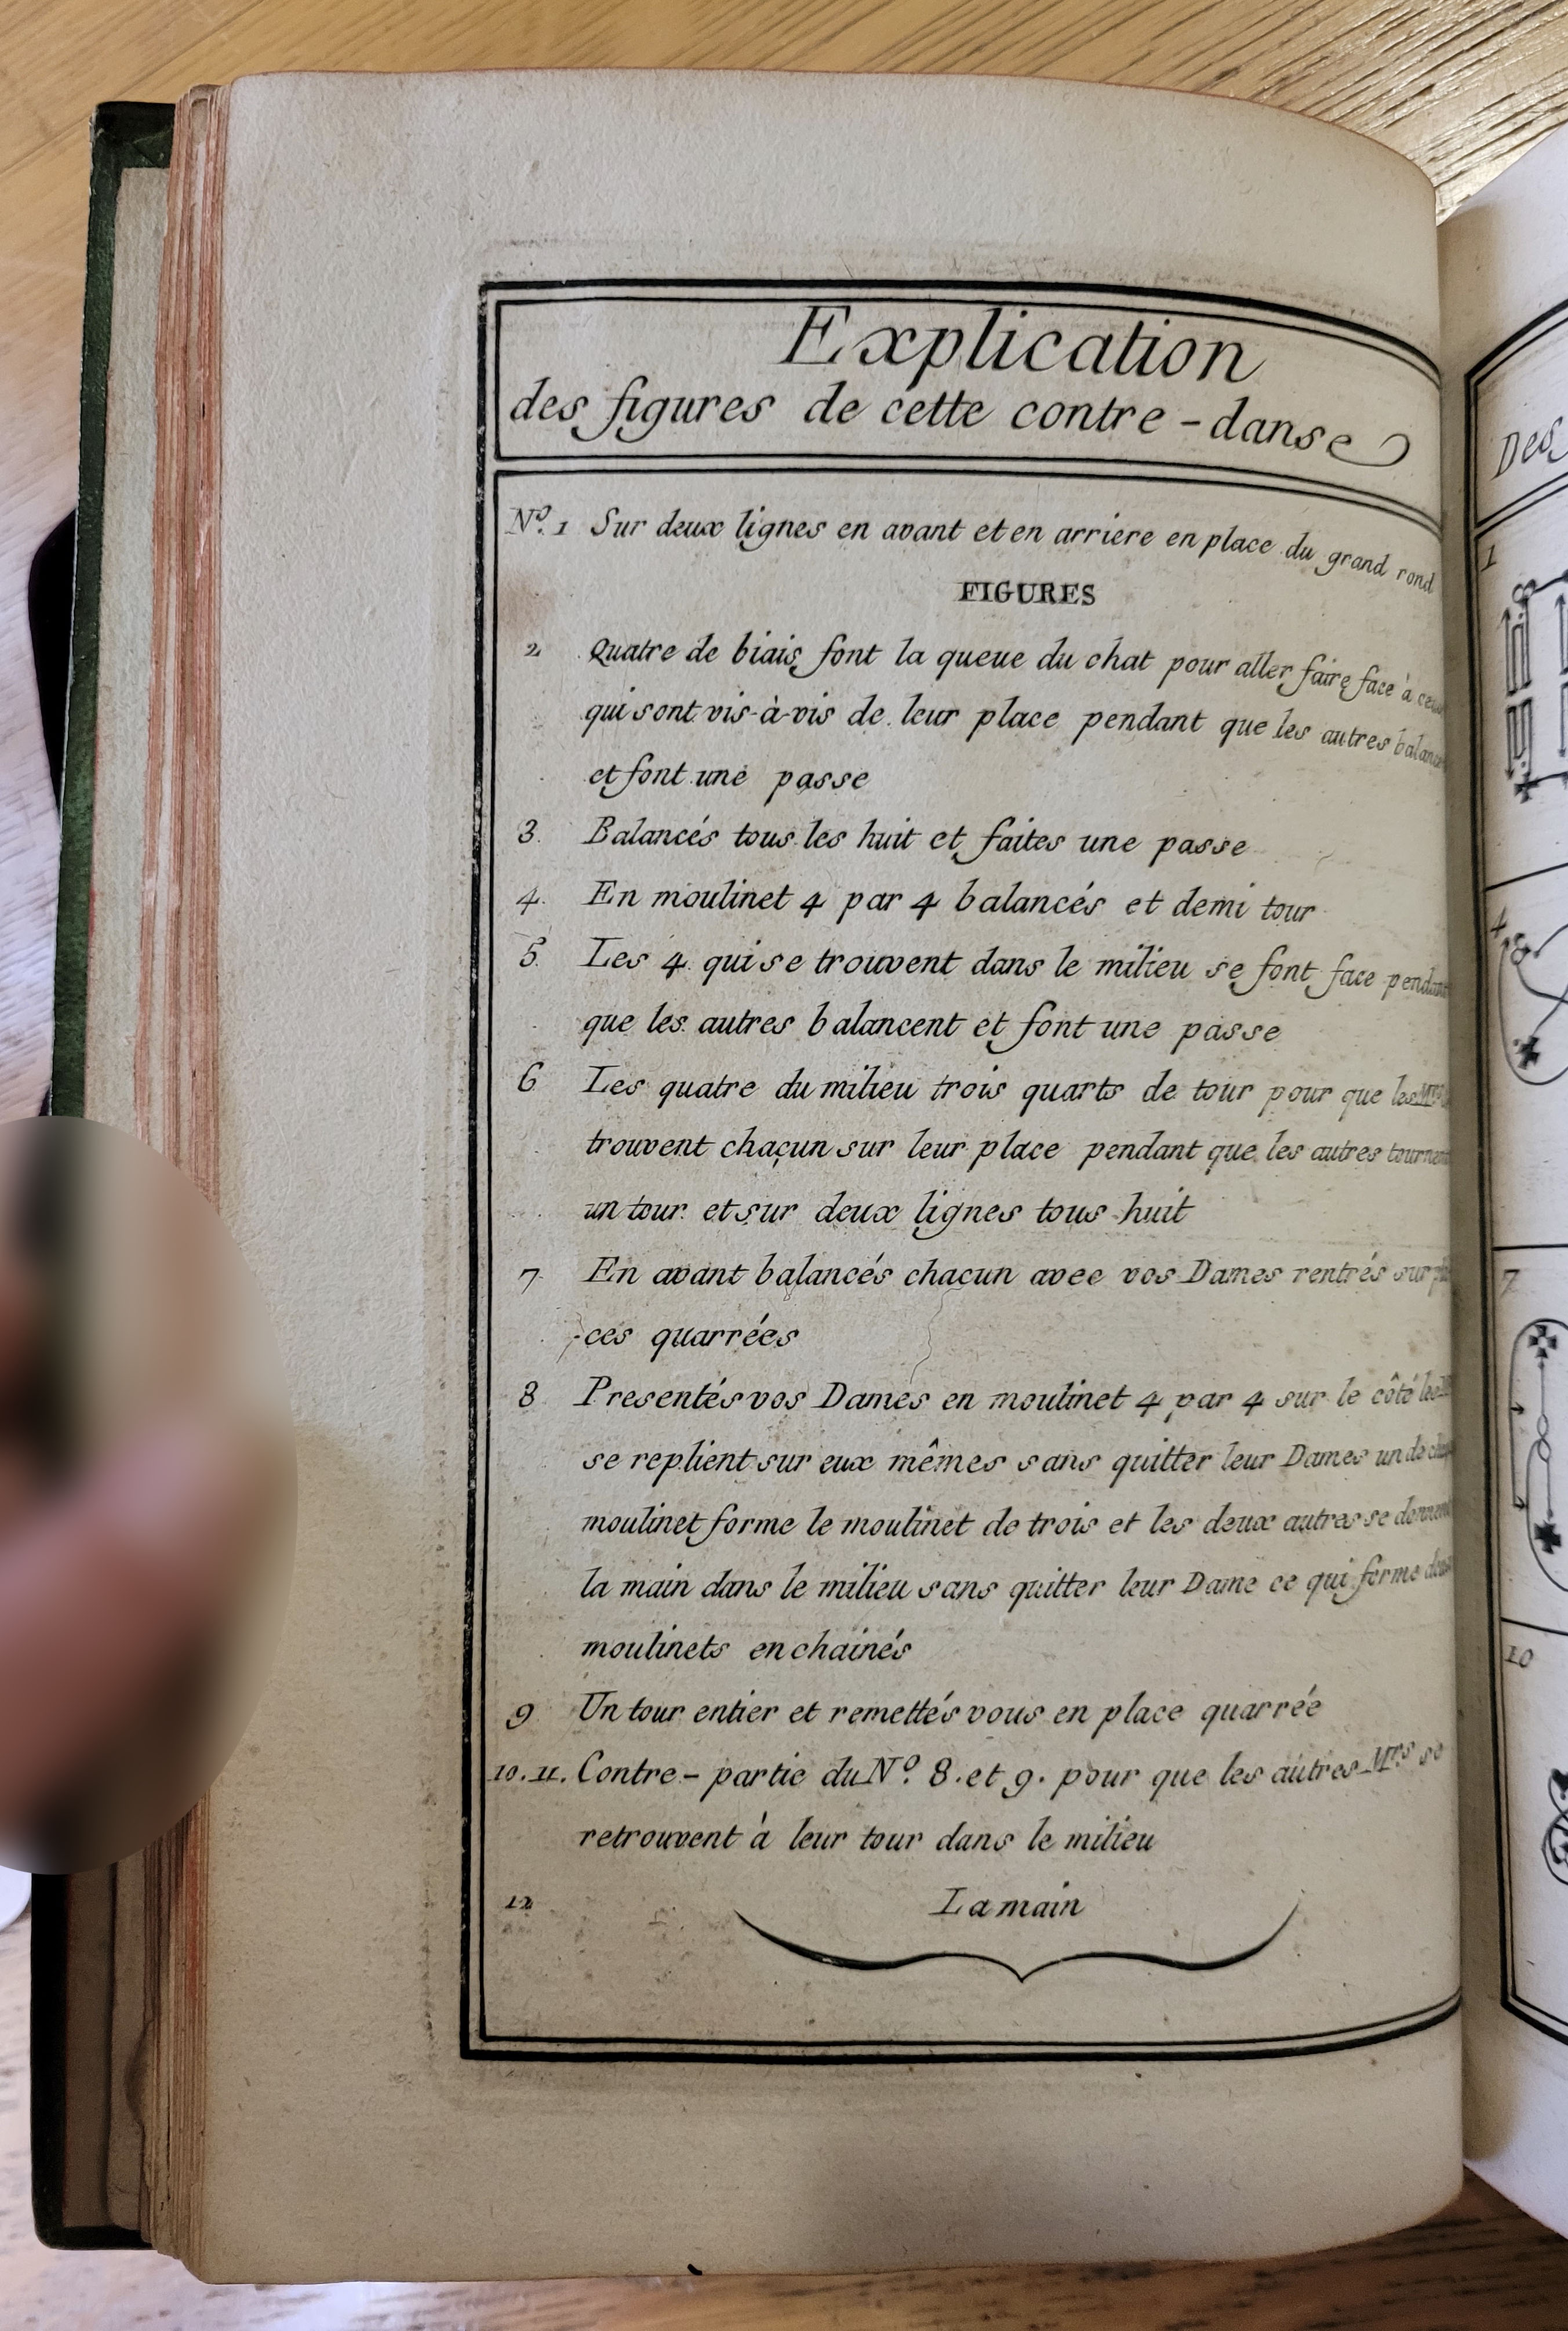 Explication
des figures de cette contre-danse
N.º 1 Sur deux lignes en avant et en arriere en place du grand rond
FIGURES
2 Quatre de biais font la queue du chat pour aller faire face à
qui sont vis-à-vis de leur place pendant que les autres
et font une passe
3. Balancés tous les huit et faites une passe
4. En moulinet 4 par 4 balancés et demi tour
5. Les 4 qui se trouvent dans le milieu se font face
que les autres balancent et font une passe
6 Les quatre du milieu trois quarts de tour pour que les
trouvent chacun sur leur place pendant que les autres
un tour et sur deux lignes tous huit
7 En avant balancés chacun avec vos Dames rentrés sur
ces quarrées
8 Presentés vos Dames en moulinet 4 par 4 sur le côté
se replient sur eux mêmes sans quitter leur Dames un de
moulinet forme le moulinet de trois et les deux autres se
la main dans le milieu sans quitter leur Dame ce qui forme
moulinets enchainés
9 Un tour entier et remettés vous en place quarrée
10. 11. Contre-partie du N.º 8. et 9. pour que les autres Mrs se
retrouvent à leur tour dans le milieu
12 La main
Des
1
4
7
10